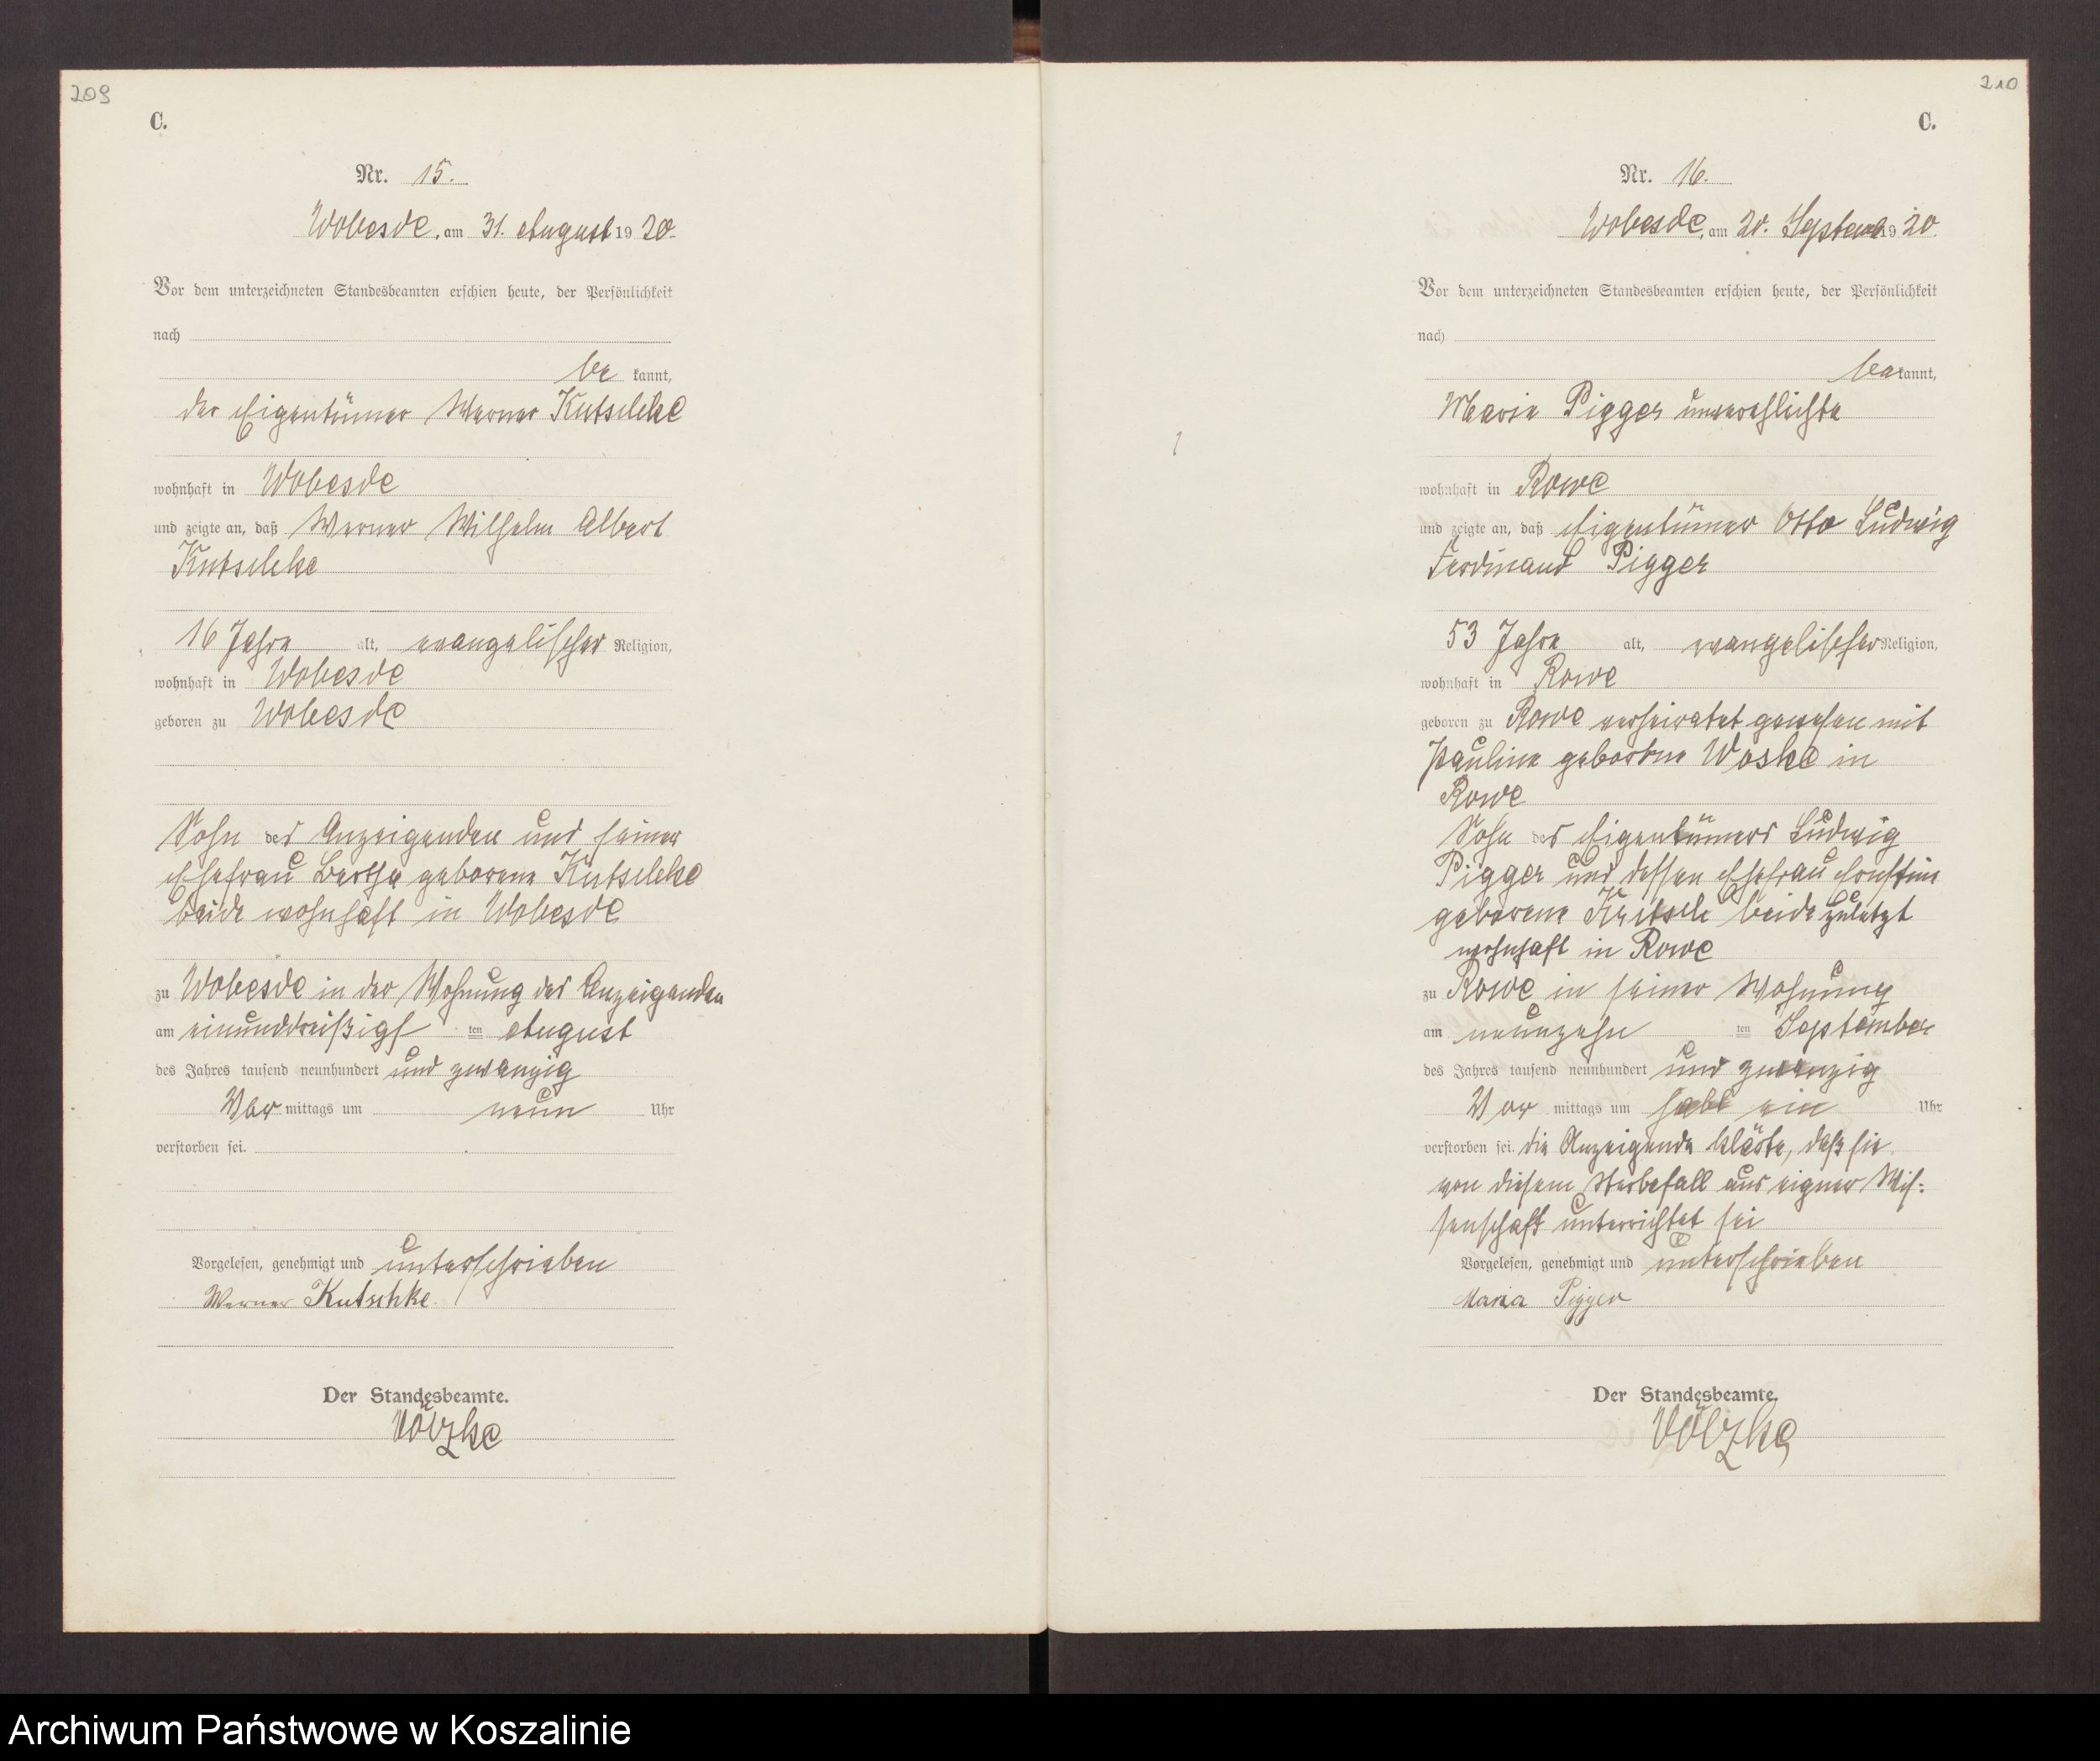 209
C.
Nr. 15.
Wobesde, am 31. August 1920.
Vor dem unterzeichneten Standesbeamten erschien heute, der Persönlichkeit
nach
be kannt,
der Eigentümer Werner Kutschke
wohnhaft in Wobesde
und zeigte an, daß Werner Wilhelm Albert
Kutschke
16 Jahre alt, evangelischer Religion,
wohnhaft in Wobesde
geboren zu Wobesde
Sohn des Anzeigenden und seiner
Ehefrau Bertha geborene Kutschke
beide wohnhaft in Wobesde
zu Wobesde in der Wohnung des Anzeigenden
am einunddreißigst ten August
des Jahres tausend neunhundert und zwanzig
Vor mittags um neun Uhr
verstorben sei.
Vorgelesen, genehmigt und unterschrieben
Werner Kutschke.
Der Standesbeamte.
Völzke
210
C.
Nr. 16.
Wobesde, am 20. Septemb 1920.
Vor dem unterzeichneten Standesbeamten erschien heute, der Persönlichkeit
nach
be kannt,
Maria Pigger unverehlichte
wohnhaft in Rowe
und zeigte an, daß Eigentümer Otto Ludwig
Ferdinand Pigger
53 Jahre alt, evangelischer Religion,
wohnhaft in Rowe
geboren zu Rowe verheiratet gewesen mit
Pauline geborene Woske in
Rowe
Sohn des Eigentümers Ludwig
Pigger und dessen Ehefrau
geborene beide zuletzt
wohnhaft in Rowe
zu Rowe in seiner Wohnung
am neunzehn ten September
des Jahres tausend neunhundert und zwanzig
Vor mittags um halb ein Uhr
verstorben sei. die Anzeigende klärte, daß sie
von diesem Sterbefall aus eigner Wis:
senschaft unterrichtet sei
Vorgelesen, genehmigt und unterschrieben
Maria Pigger
Der Standesbeamte.
Völzke
Archiwum Państwowe w Koszalinie